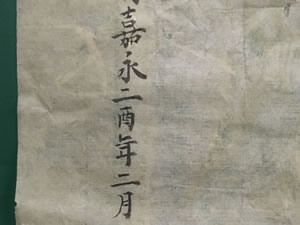 嘉永二酉年二月